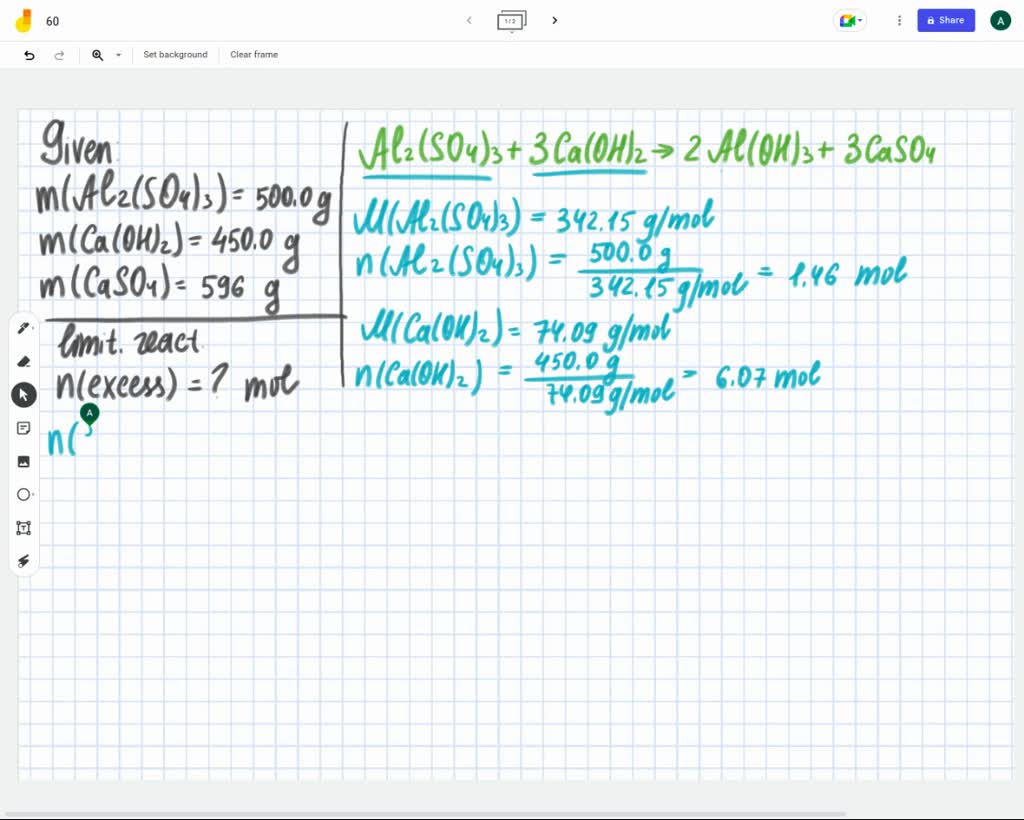 60
1/2
Share
A
Set background
Clear frame
Given
m(Al₂(SO₄)₃) = 500.0 g
m(Ca(OH)₂) = 450.0 g
m(CaSO₄) = 596 g
limit. react.
n(excess) = ? mol
A
n(
Al₂(SO₄)₃ + 3Ca(OH)₂ → 2Al(OH)₃ + 3CaSO₄
M(Al₂(SO₄)₃) = 342.15 g/mol
n(Al₂(SO₄)₃) = 500.0 g / 342.15 g/mol = 1.46 mol
M(Ca(OH)₂) = 74.09 g/mol
n(Ca(OH)₂) = 450.0 g / 74.09 g/mol = 6.07 mol